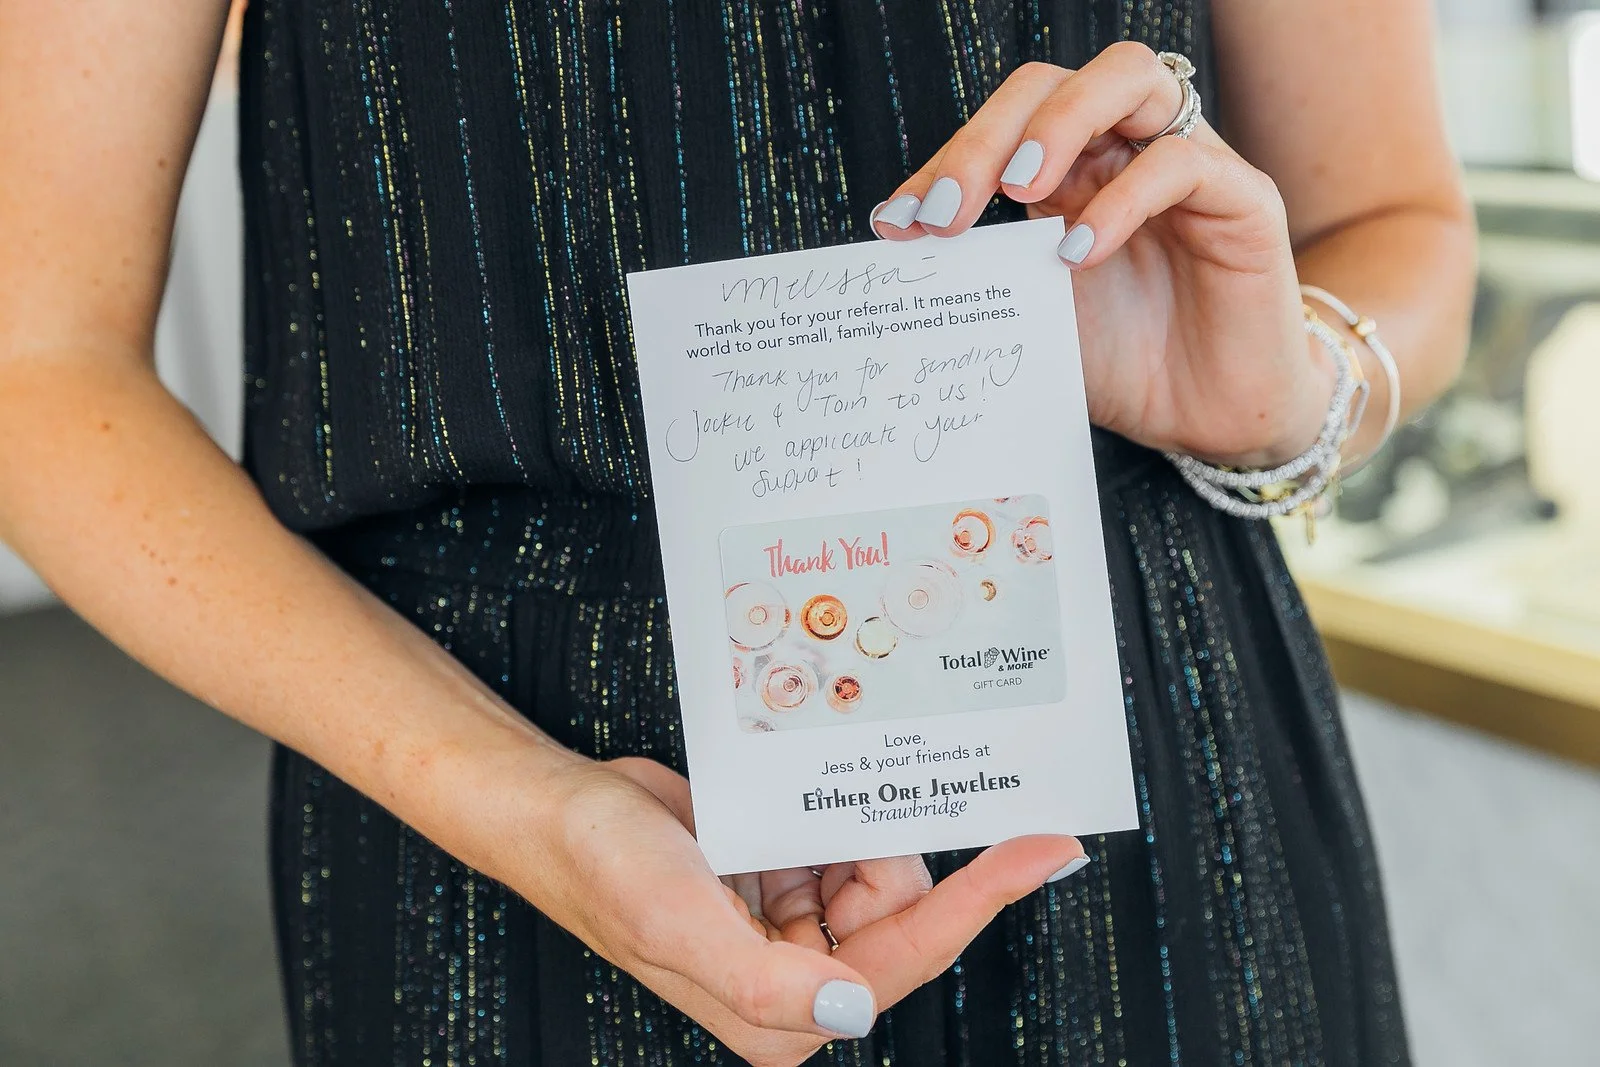 Melissa-
Thank you for your referral. It means the
world to our small, family-owned business.
Thank you for sending
Jackie & Tom to us!
we appreciate your
support!
Thank You!
Total Wine
& MORE
GIFT CARD
Love,
Jess & your friends at
EITHER ORE JEWELERS
Strawbridge